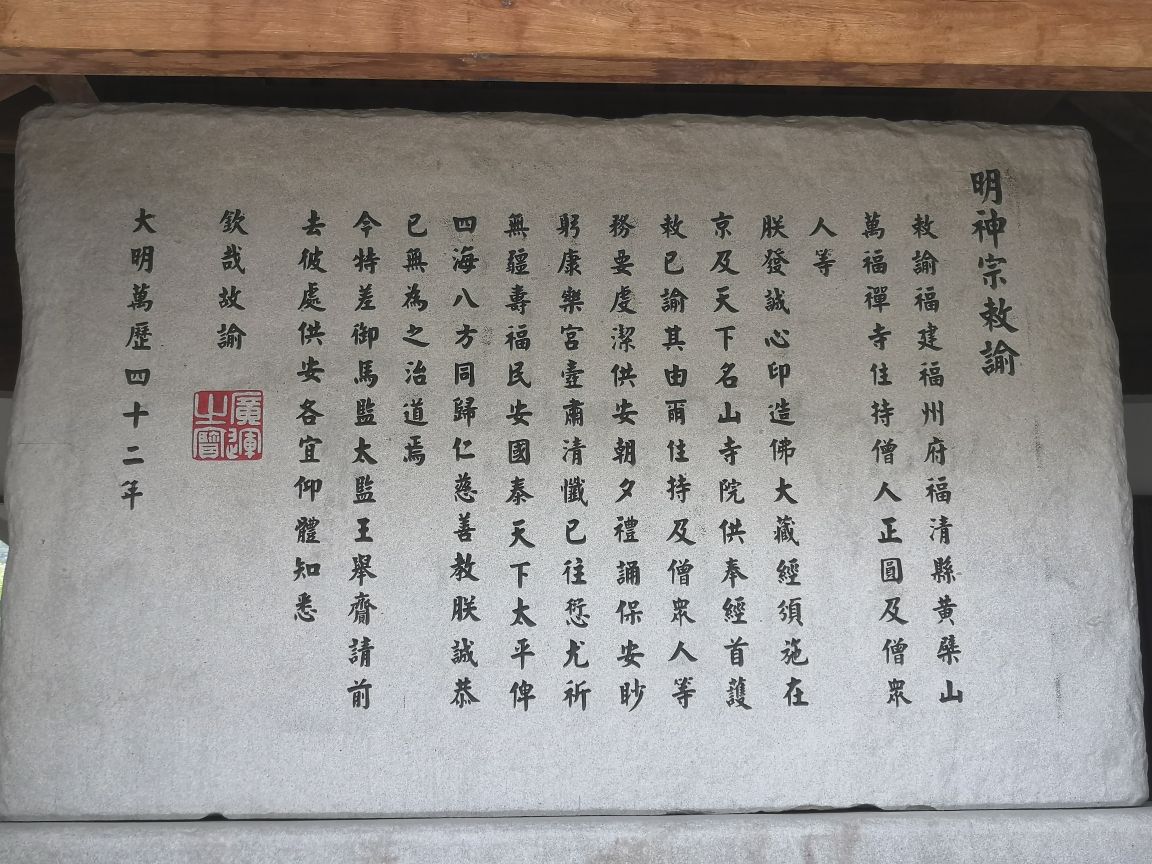 明神宗敕諭
敕諭福建福州府福清縣黃檗山
萬福禪寺住持僧人正圓及僧眾
人等
朕發誠心印造佛大藏經須施在
京及天下名山寺院供奉經首護
敕已諭其由爾住持及僧眾人等
務要虔潔供安朝夕禮誦保安眇
躬康樂宮壼肅清懺已往愆尤祈
無疆壽福民安國泰天下太平俾
四海八方同歸仁慈善教朕誠恭
已無為之治道焉
今特差御馬監太監王舉齎請前
去彼處供安各宜仰體知悉
欽哉故諭
廣運之寶
大明萬歷四十二年